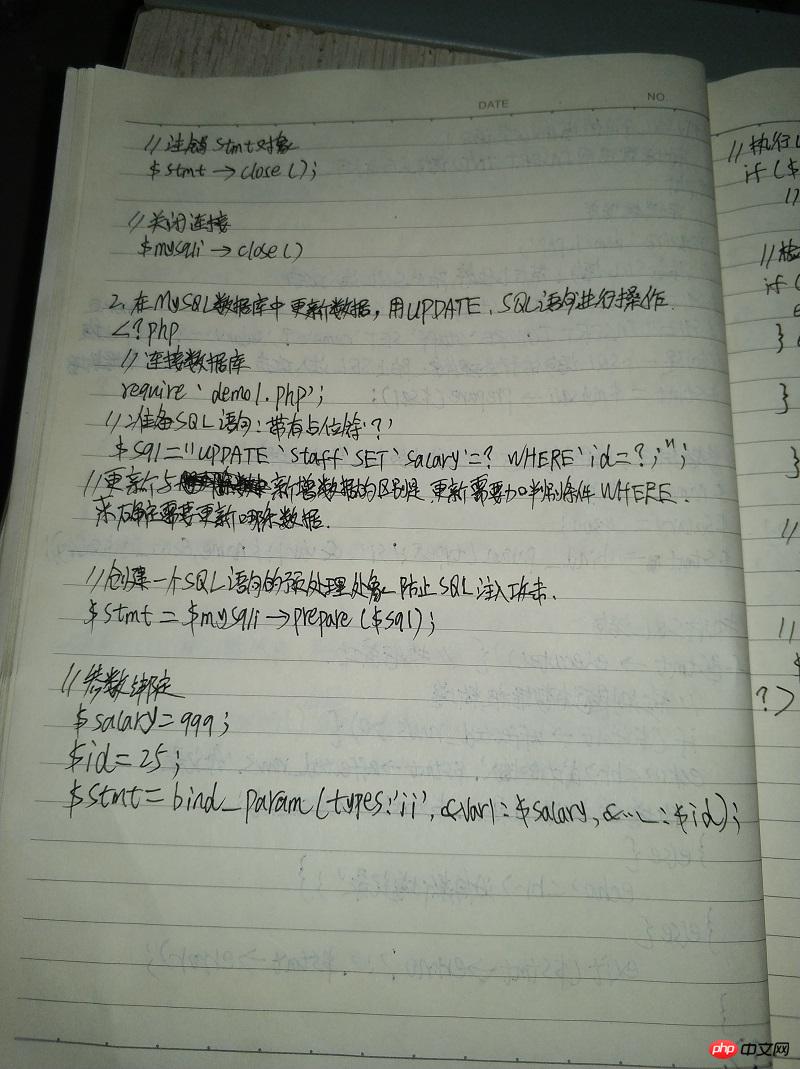 DATE NO.
//注销stmt对象
$stmt→close();
//关闭连接
$mysqli→close()
2.在MySQL数据库中更新数据,用UPDATE、SQL语句进行操作.
<?php
//连接数据库
require 'demo1.php';
//准备SQL语句:带有占位符'?'
$sql="UPDATE `staff` SET `salary`=? WHERE `id=?;";
//更新与新增数据的区别是,更新需要加判别条件WHERE.
来确定需要更新哪条数据.
//创建一个SQL语句的预处理对象 防止SQL注入攻击.
$stmt=$mysqli→prepare($sql);
//参数绑定
$salary=999;
$id=25;
$stmt=bind_param(types:'ii',&var1:$salary,&..._:$id);
//执行
if($
//
//检
if(
e
}
}
}
//
//
$
?>
php 中文网